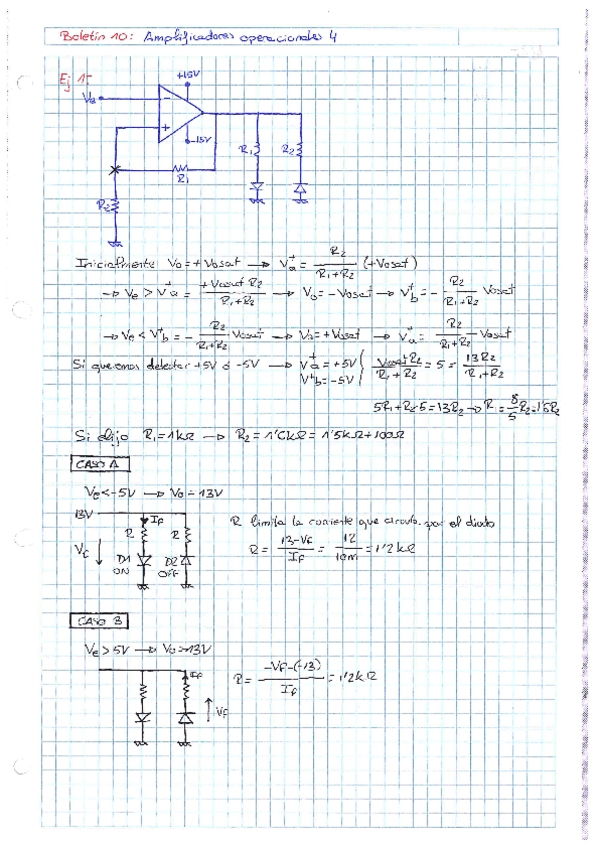 Boletín 10: Amplificadores operacionales 4
Ej 1:
+15V
Ve
-
+
-15V
R1
R1
R2
R2
Inicialmente Vo = +Vosat → V+a = R2/(R1+R2) (+Vosat)
→ Ve > V+a = +Vosat R2/(R1+R2) → Vo = -Vosat → V+b = - R2/(R1+R2) Vosat
→ Ve < V+b = - R2/(R1+R2) Vosat → Vo = +Vosat → V+a = R2/(R1+R2) Vosat
Si queremos detectar +5V ó -5V → V+a = +5V } Vosat R2/(R1+R2) = 5 = 13R2/(R1+R2)
V+b = -5V
5R1 + R2·5 = 13R2 → R1 = 8/5 R2 = 1'6R2
Si elijo R1 = 1kΩ → R2 = 1'6kΩ = 1'5kΩ + 100Ω
CASO A
Ve < -5V → Vo = 13V
13V
If
R limita la corriente que circula por el diodo
R
R
R = (13 - Vf)/If = 12/10m = 1'2kΩ
Vf
D1
ON
D2
OFF
CASO B
Ve > 5V → Vo = -13V
If
R = (-Vf-(-13))/If = 1'2kΩ
Vf